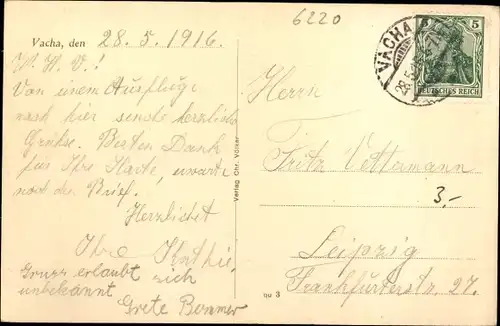 6220
Vacha, den 28.5.1916.
W. W. V.!
Von einem Ausfluge
nach hier sende herzliche
Grüße. Besten Dank
für Ihre Karte, warte
noch des Brief.
Herzlichst
Ihre
Gruss erlaubt sich
unbekannt
Grete
Verlag Chr. Völker
qu 3
VACHA
28.5.
5
DEUTSCHES REICH
Herrn
Fritz Vettermann
3,-
Leipzig
Frankfurterstr. 27.